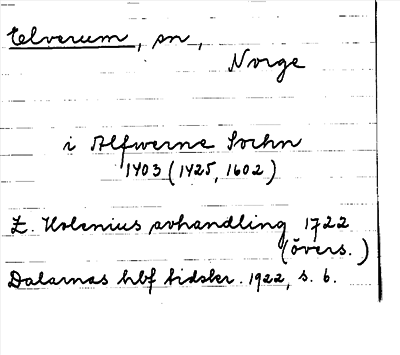 Elverum, sn,
Norge
i Alfwerne Sochn
1403 (1425, 1602)
E. Holenius avhandling 1722
(övers.)
Dalarnas hbf tidskr. 1922, s. 6.